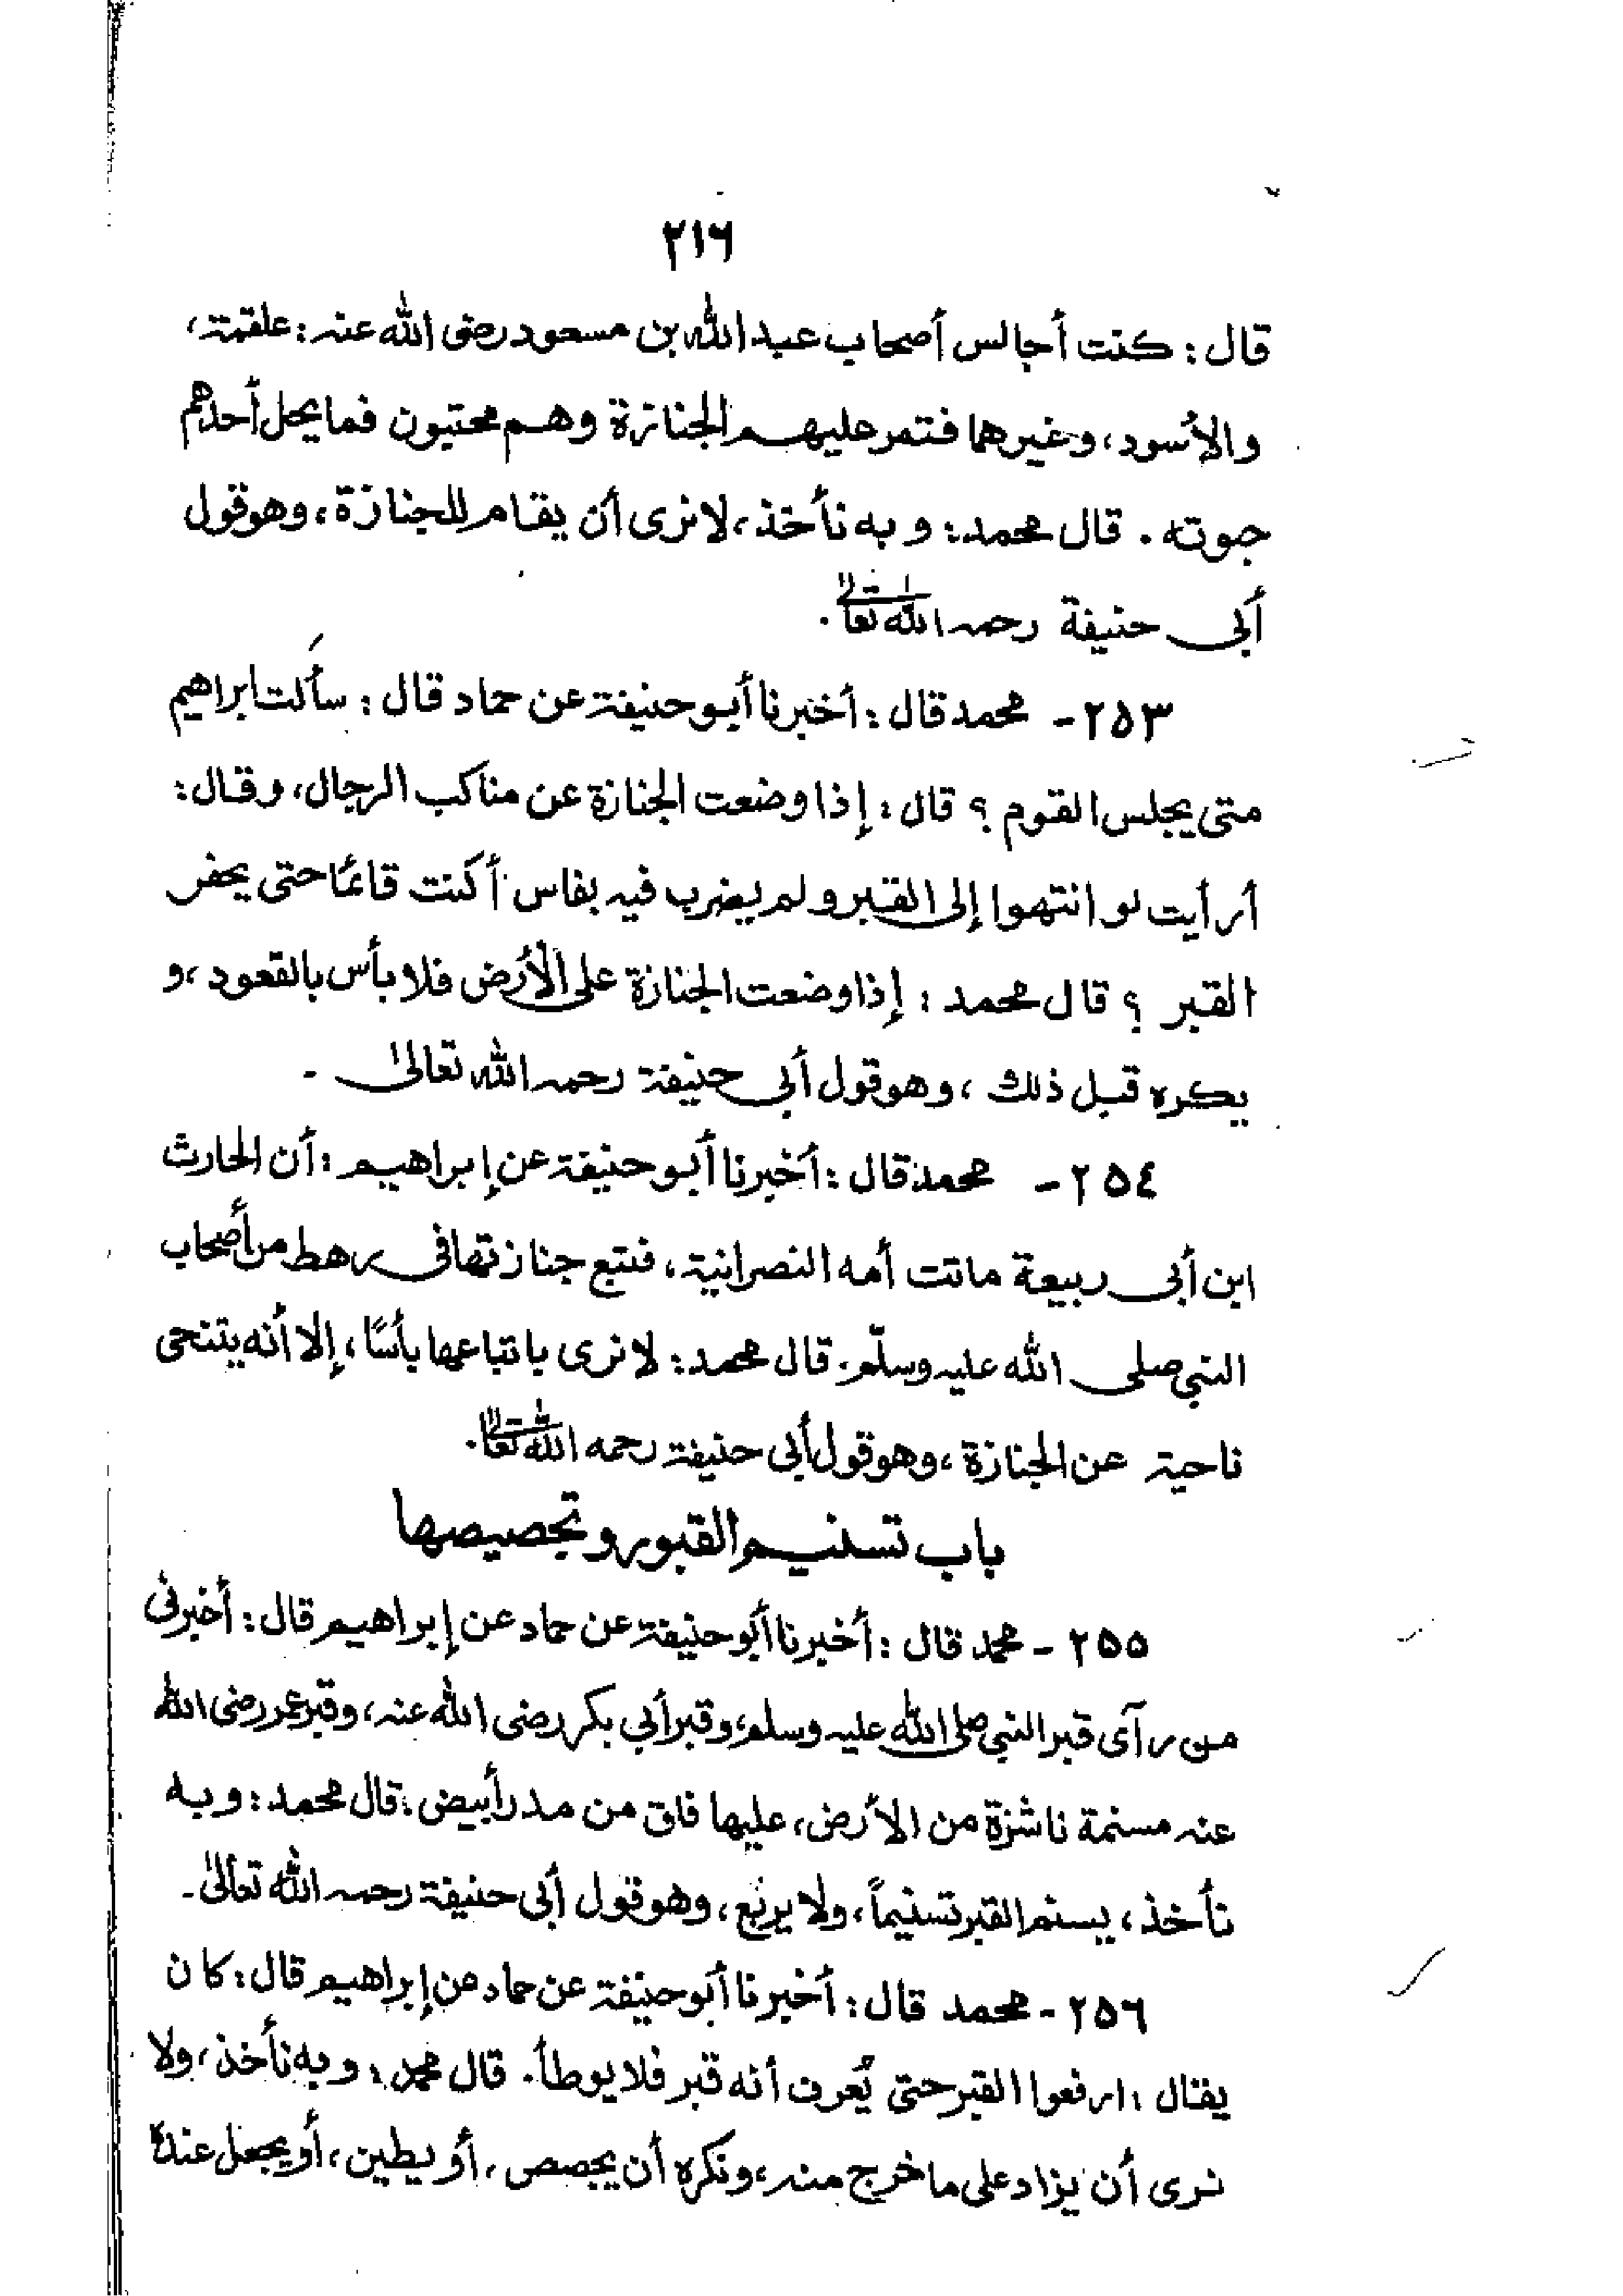 ٢١٦
قال: كنت أجالس أصحاب عبد الله بن مسعود رضى الله عنه: علقمة،
والأسود، وغيرهما فتمر عليهم الجنازة وهم محتبون فما يحل أحدهم
حبوته. قال محمد: وبه نأخذ، لا نرى أن يقام للجنازة، وهو قول
أبى حنيفة رحمه الله تعالىٰ.
٢٥٣- محمد قال: أخبرنا أبو حنيفة عن حماد قال: سألت ابراهيم
متى يجلس القوم؟ قال: إذا وضعت الجنازة عن مناكب الرجال، وقال:
أرأيت لو انتهوا إلى القبر ولم يضرب فيه بفاس أكنت قائما حتى يحفر
القبر؟ قال محمد: إذا وضعت الجنازة على الأرض فلا بأس بالقعود، و
يكره قبل ذلك، وهو قول أبى حنيفة رحمه الله تعالىٰ.
٢٥٤- محمد قال: أخبرنا أبو حنيفة عن إبراهيم: أن الحارث
ابن أبى ربيعة ماتت أمه النصرانية، فتبع جنازتها فى رهط من أصحاب
النبي صلى الله عليه وسلّم. قال محمد: لا نرى باتباعها بأسًا، إلا أنه يتنحى
ناحية عن الجنازة، وهو قول أبى حنيفة رحمه الله تعالىٰ.
باب تسنيم القبور وتجصيصها
٢٥٥- محمد قال: أخبرنا أبو حنيفة عن حماد عن إبراهيم قال: أخبرنى
من رآى قبر النبي صلى الله عليه وسلم، وقبر أبي بكر رضى الله عنه، وقبر عمر رضى الله
عنه مسنمة ناشزة من الأرض، عليها فلق من مدر أبيض. قال محمد: وبه
نأخذ، يسنم القبر تسنيماً، ولا يربّع، وهو قول أبى حنيفة رحمه الله تعالىٰ.
٢٥٦- محمد قال: أخبرنا أبو حنيفة عن حماد عن إبراهيم قال: كان
يقال: ارفعوا القبر حتى يُعرف أنه قبر فلا يوطأ. قال محمد: وبه نأخذ، ولا
نرى أن يزاد على ما خرج منه، ونكره أن يجصص، أو يطين، أو يجعل عنده